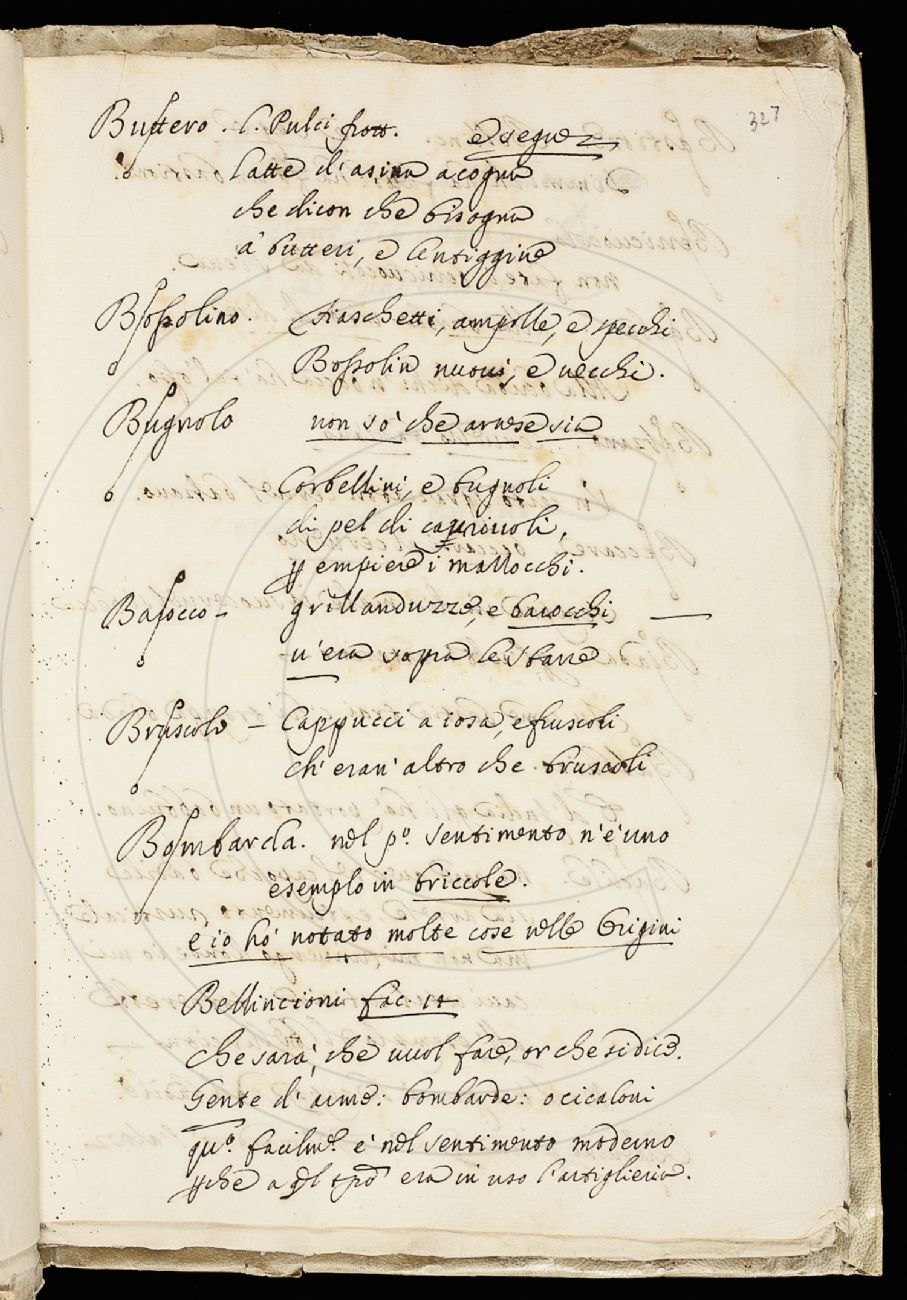 327
Buttero. L. Pulci frott. e segue
latte d'asina acogna
che dicon che bisogna
a' butteri, e lentiggine
Bossolino. Fiaschetti, ampolle, e specchi
Bossolin nuovi, e vecchi.
Bugnolo non so' che arnese sia
Corbellini, e bugnoli
di pel di caurivoli,
ꝑ empiere i mallocchi.
Baiocco - grillanduzze, e baiocchi
n'era sopra le sbarre
Bruscolo - Cappucci a iosa, e fruscoli
ch' eran' altro che bruscoli
Bombarda. nel pº. sentimento n'è uno
esemplo in briccole.
e io hó notato molte cose nelle Origini
Bellincioni fac. 14
che sara', che vuol fare, or che si dice.
Gente d' arme: bombarde: o cicaloni
quº. facilmẽ. e' nel sentimento moderno
ꝑche a ql tpo era in uso l'artiglieria.